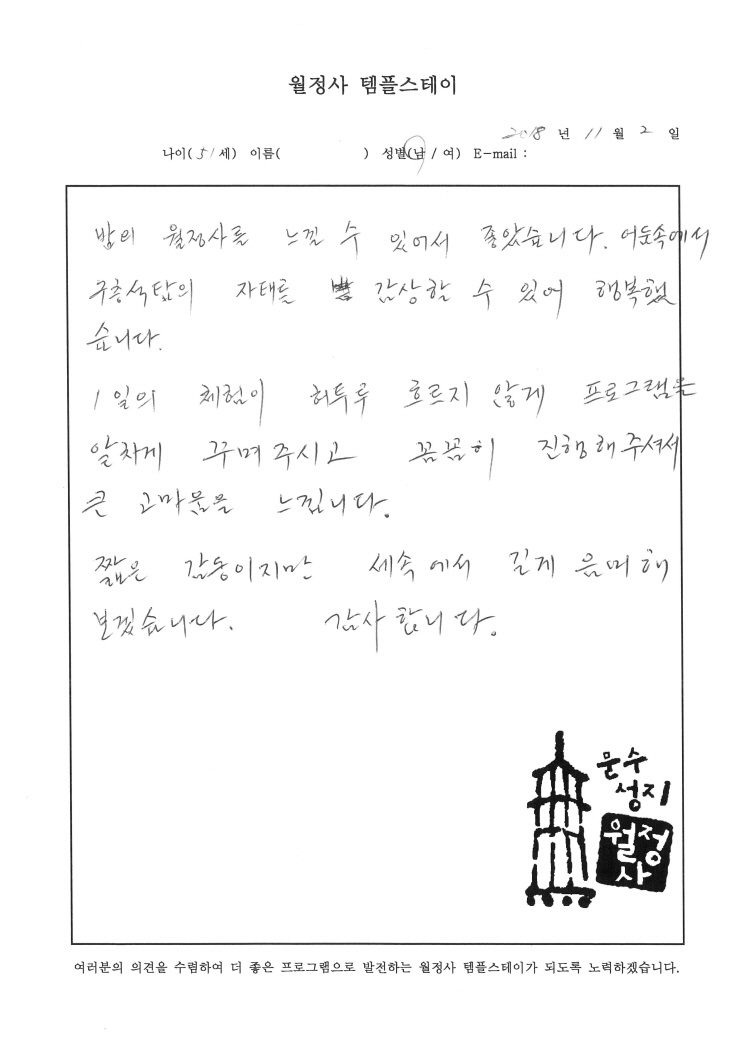 월정사 템플스테이
2018 년 11 월 2 일
나이( 51 세) 이름( ) 성별(남 / 여) E-mail :
밤의 월정사를 느낄 수 있어서 좋았습니다. 어둠속에서
구층석탑의 자태를 감상할 수 있어 행복했
습니다.
1일의 체험이 허투루 흐르지 않게 프로그램을
알차게 꾸며주시고 꼼꼼히 진행해주셔서
큰 고마움을 느낍니다.
짧은 감동이지만 세속에서 길게 음미해
보겠습니다. 감사합니다.
문수
성지
월정
사
여러분의 의견을 수렴하여 더 좋은 프로그램으로 발전하는 월정사 템플스테이가 되도록 노력하겠습니다.